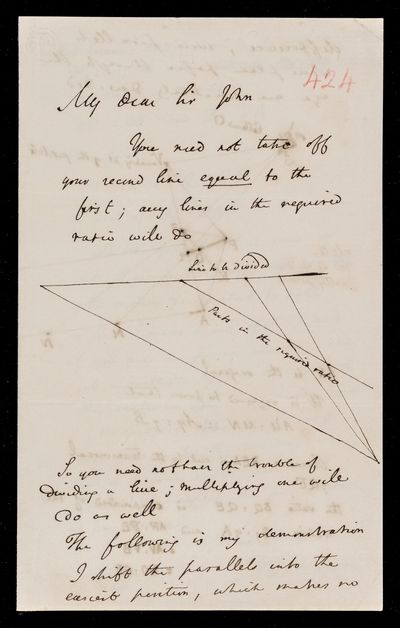 424
My Dear Sir John
You need not take off
your second line equal to the
first; any lines in the required
ratio will do
Line to be divided
Parts in the required ratio
So you need not have the trouble of
dividing a line; multiplying one will
do as well
The following is my demonstration
I shift the parallels into the
easiest position, which makes no